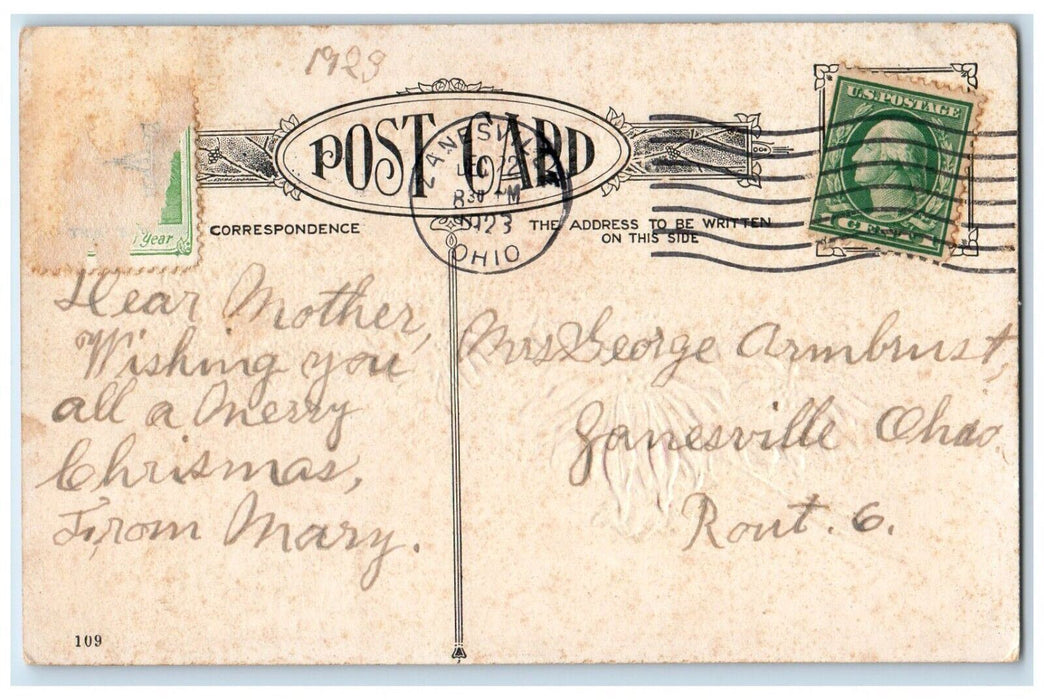 1923
POST CARD
ZANESVILLE
DEC 12
8 30 PM
1923
OHIO
U.S. POSTAGE
Year
CORRESPONDENCE
THE ADDRESS TO BE WRITTEN
ON THIS SIDE
Dear Mother,
Wishing you
all a Merry
Chrismas,
From Mary.
Mrs George Armbrust,
Zanesville Ohio
Rout. 6.
109